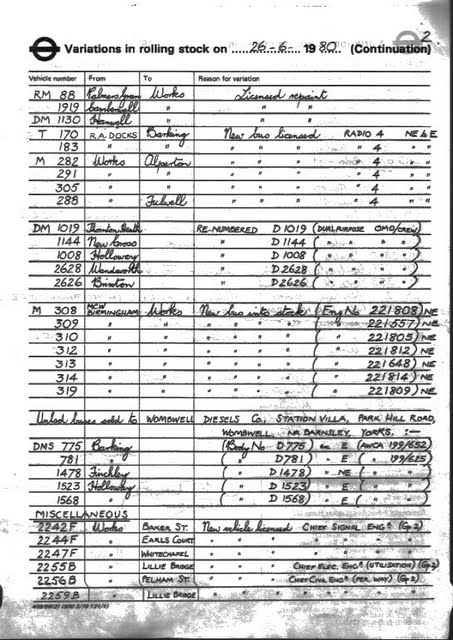 2
Variations in rolling stock on ..... 26-6- ..... 1980.... (Continuation)
Vehicle number From To Reason for variation
RM 88 Palmers Green Works Licensed repaint
1919 Camberwell " " "
DM 1130 Hanwell " " "
T 170 R.A. DOCKS Barking New bus licensed RADIO 4 NE & E
183 " " " " " " 4 " " "
M 282 Works Alperton " " " " 4 " " "
291 " " " " " " 4 " " "
305 " " " " " " 4 " " "
288 " Fulwell " " " " 4 " " "
DM 1019 Thornton Heath RE-NUMBERED D 1019 (DUAL PURPOSE OMO/CREW)
1144 New Cross " D 1144 ( " " " " )
1008 Holloway " D 1008 ( " " " " )
2628 Wandsworth " D 2628 ( " " " " )
2626 Brixton " D 2626 ( " " " " )
M 308 MCW BIRMINGHAM Works New bus into stock (Eng No 221808) NE
309 " " " " " " ( " 221557) NE
310 " " " " " " ( " 221805) NE
312 " " " " " " ( " 221812) NE
313 " " " " " " ( " 221648) NE
314 " " " " " " ( " 221814) NE
319 " " " " " " ( " 221809) NE
buses sold to WOMBWELL DIESELS Co., STATION VILLA, PARK HILL ROAD,
WOMBWELL, NR. BARNSLEY, YORKS. :—
DMS 775 Barking (Body No D 775) E (AWCA 199/652)
781 " ( " D 781) " E ( " 199/625)
1478 Finchley ( " D 1478) " NE ( " " )
1523 Holloway ( " D 1523) " E ( " " )
1568 " ( " D 1568) " E ( " " )
MISCELLANEOUS
2242F Works BAKER ST. New vehicle licensed CHIEF SIGNAL ENGR (Gp 2)
2244F " EARLS COURT " " " " " " "
2247F " WHITECHAPEL " " " " " " "
2255B " LILLIE BRIDGE " " " CHIEF ELEC. ENGR (UTILISATION) (Gp 2)
2256B " PELHAM ST. " " " CHIEF CIVIL ENGR (PER. WAY) (Gp 2)
2259B " LILLIE BRIDGE " " " " " " "